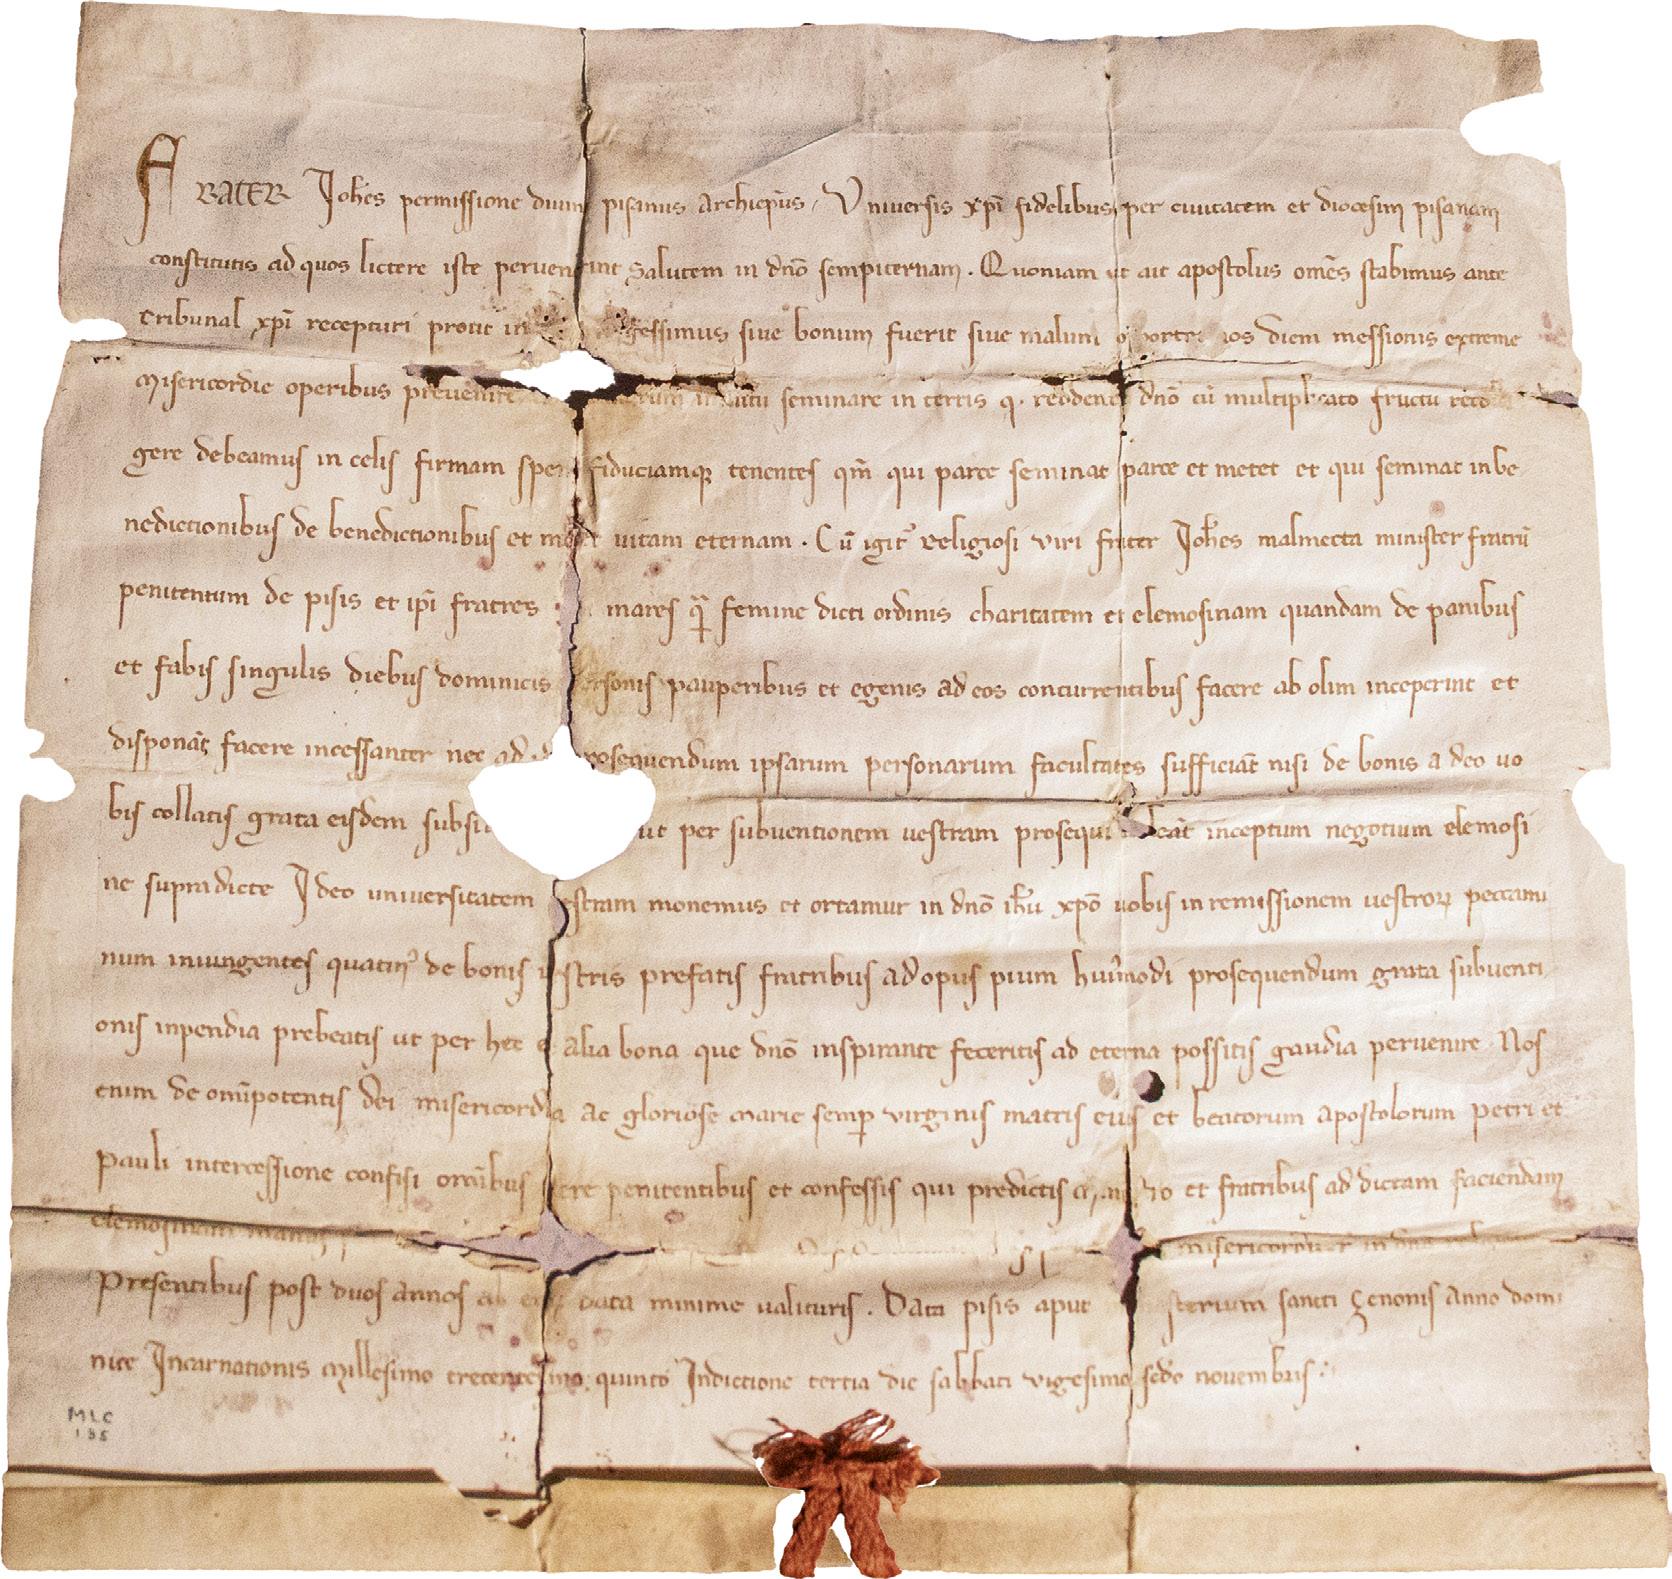 FRATER Johes permissione divin pisanus Archiepus. Universis xpi fidelibus per civitatem et diocesim pisanam
constitutis ad quos lictere iste perven int Salutem in dno sempiternam. Quoniam ut ait apostolus omes stabimus ante
tribunal xpi recepturi prout in gessimus sive bonum fuerit sive malum os diem messionis extreme
misericordie operibus prevenire seminare in terris q. reddente dno cu multiplicato fructu
gere debeamus in celis firmam spem fiduciamq tenentes qm qui parce seminat parce et metet et qui seminat in be
nedictionibus de benedictionibus et vitam eternam. Cu igit religiosi viri frater Johes malmecta minister fratru
penitentum de pisis et ipi fratres mares qa femine dicti ordinis charitatem et elemosinam quandam de panibus
et fabis singulis diebus dominicis ersonis pauperibus et egenis ad eos concurrentibus facere ab olim inceperint et
disponat facere incessanter nec ad rosequendum ipsarum personarum facultates sufficiat nisi de bonis a deo vo
bis collatis grata eisdem subsi ut per subventionem vestram prosequi eat inceptum negotium elemosi
ne supradicte Ideo universitatem estram monemus et ortamur in dno ihu xpo vobis in remissionem vestror peccami
num iniungentes quatin de bonis vestris prefatis fratribus ad opus pium huimodi prosequendum grata subventi
onis inpendia prebeatis ut per hec e alia bona que dno inspirante feceritis ad eterna possitis gaudia pervenire Nos
enim de omipotentis dei misericordia ac gloriose marie semp virginis matris eius et beatorum apostolorum petri et
pauli intercessione confisi omibus ere penitentibus et confessis qui predictis ro et fratribus ad dictam faciendam
elemosinam manus misericorditer in
Presentibus post duos annos ab data minime valituris. Data pisis aput sterium sancti çenonis Anno domi
nice Incarnationis millesimo trecentesimo quinto Indictione tertia die sabbati vigesimo sedo novembris.
MLC
185